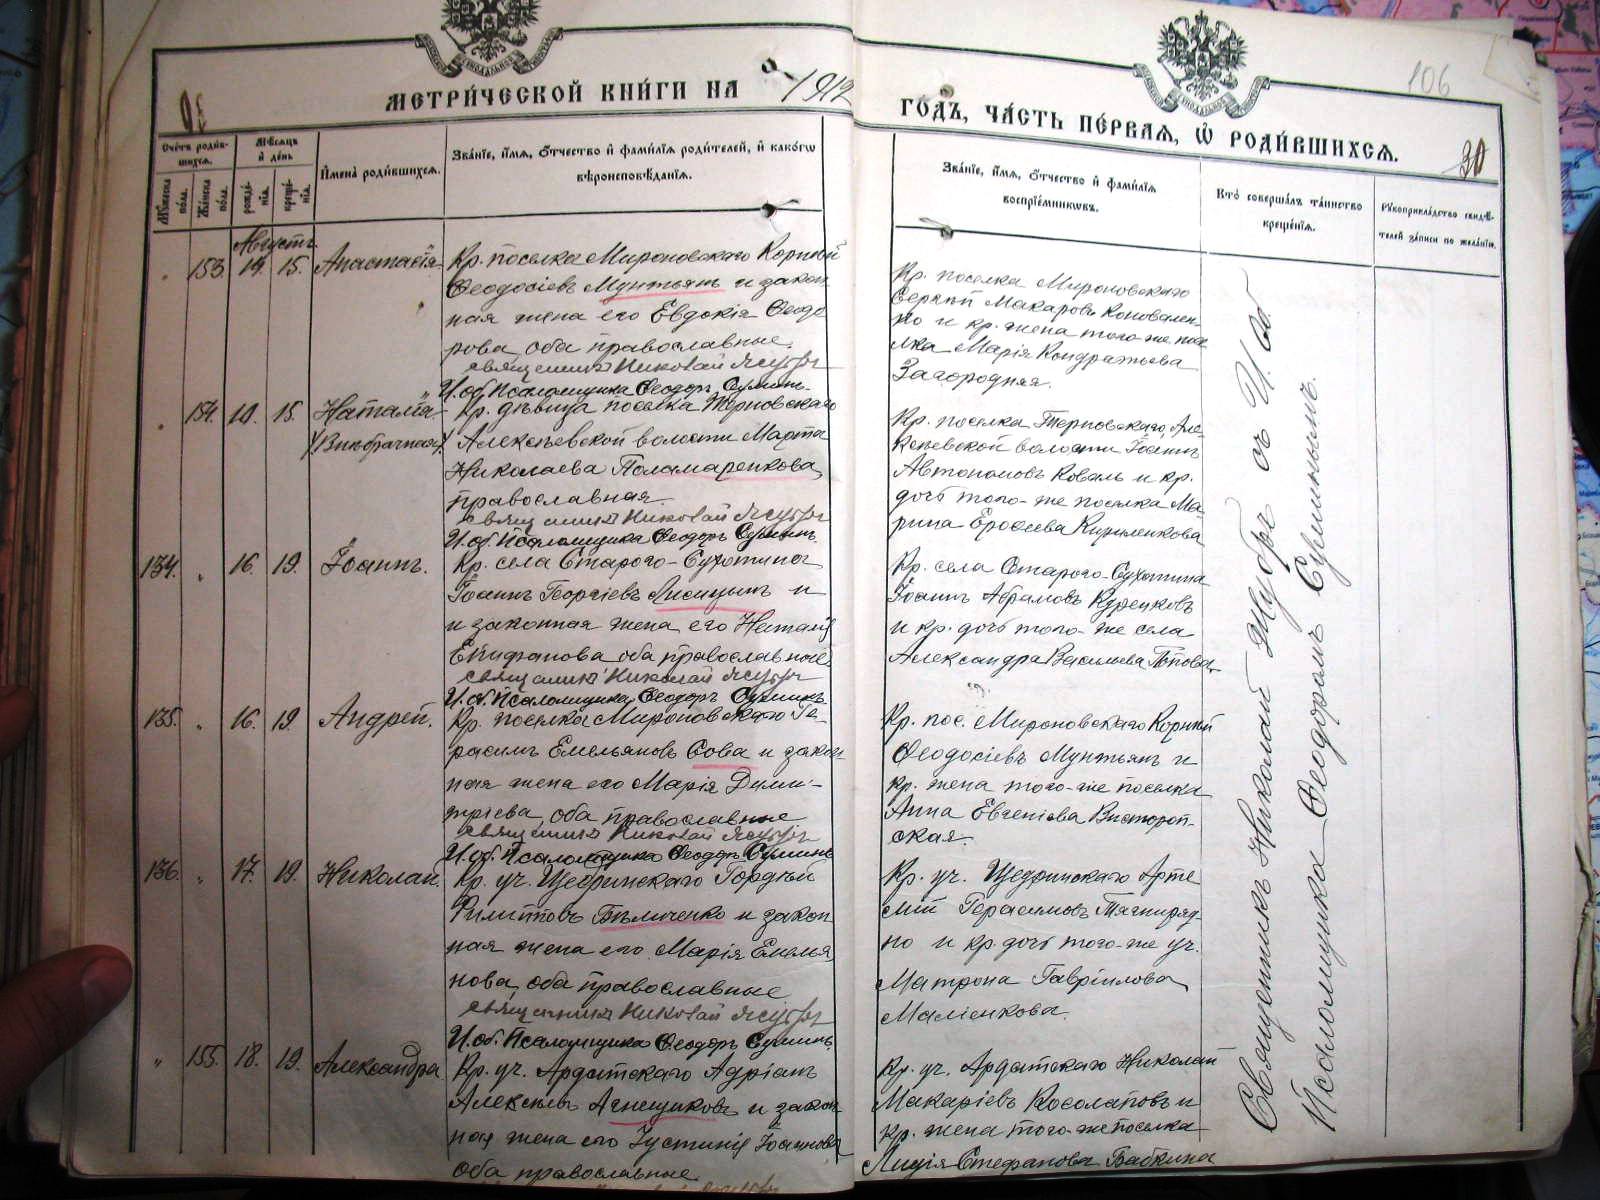 МЕТРИ́ЧЕСКОЙ КНИ́ГИ НА 1912
ГОДЪ, ЧА́СТЬ ПЕ́РВАЯ, Ѡ҆ РОДИ́ВШИХСЯ.
106
30
Сче́тъ роди́в-
шихся.
Мѣ́сяцъ
и҆ де́нь
Му́жеска
по́ла.
Же́нска
по́ла.
рожде́-
нїя.
креще́-
нїя.
И҆мена̀ роди́вшихся.
Зва́нїе, и҆́мя, ѻ҆́тчество и҆ фами́лїя роди́телей, и҆ како́гѡ
вѣроисповѣ́данїя.
Зва́нїе, и҆́мя, ѻ҆́тчество и҆ фами́лїя
воспрїе́мникѡвъ.
Кто̀ соверша́лъ та́инство
креще́нїя.
Рꙋкоприкла́дство свидѣ́-
телей за́писи по жела́нїю.
Августъ.
153. 14. 15. Анастасія
Кр. поселка Мироновскаго Корній
Ѳеодосіевъ Мунтьянъ и закон
ная жена его Евдокія Ѳеодо
рова, оба православные.
Священникъ Николай
И. об. Псаломщика Ѳеодоръ Сушинъ.
Кр. поселка Мироновскаго
Сергій Макаровъ Коновален-
ко и кр. жена того-же посе
лка Марія Кондратьева
Загородняя.
154. 10. 15. Наталія
(Внебрачная)
Кр. дѣвица поселка Терновскаго
Алексѣевской волости Марта
Николаева Поламаренкова,
православная.
Священникъ Николай
И. об. Псаломщика Ѳеодоръ Сушинъ.
Кр. поселка Терновскаго, Але-
ксѣевской волости Іоаннъ
Автономовъ Коваль и кр.
дочь того-же поселка Ма
рина Ероѳеева Кириленкова
134. " 16. 19. Іоаннъ.
Кр. села Старого-Сухотина
Іоаннъ Георгіевъ Лисицынъ и
и законная жена его Наталія
Епифанова оба православные
Священникъ Николай
И. об. Псаломщика Ѳеодоръ Сушинъ.
Кр. села Старого-Сухотина
Іоаннъ Абрамовъ Куренковъ
и кр. дочь того-же села
Александра Васильева Попова
135. " 16. 19. Андрей.
Кр. поселка Мироновскаго Ге-
расимъ Емельяновъ Сова и закон
ная жена его Марія Дими-
тріева, оба православные
Священникъ Николай
И. об. Псаломщика Ѳеодоръ Сушинъ
Кр. пос. Мироновскаго Корній
Ѳеодосіевъ Мунтьянъ и
кр. жена того-же поселка
Анна Евгеніева Вистороп-
ская.
136. " 17. 19. Николай.
Кр. уч. Щедринскаго Гордѣй
Филиповъ Бѣличенко и закон
ная жена его Марія Емелья
нова, оба православные
Священникъ Николай
И. об. Псаломщика Ѳеодоръ Сушинъ.
Кр. уч. Щедринскаго Арте
мій Герасимовъ Тягниряд-
но и кр. дочь того-же уч.
Матрона Гавріилова
Маліенкова.
" 155. 18. 19. Александра
Кр. уч. Ардатскаго Адріанъ
Алексѣевъ Агнещиковъ и закон
ная жена его Іустинія Іоаннова
оба православные
Кр. уч. Ардатскаго Николай
Макаріевъ Косолаповъ и
кр. жена того-же поселка
Лидія Стефанова Бабкина
Священникъ Николай съ И. об.
Псаломщика Ѳеодоромъ Сушинымъ.